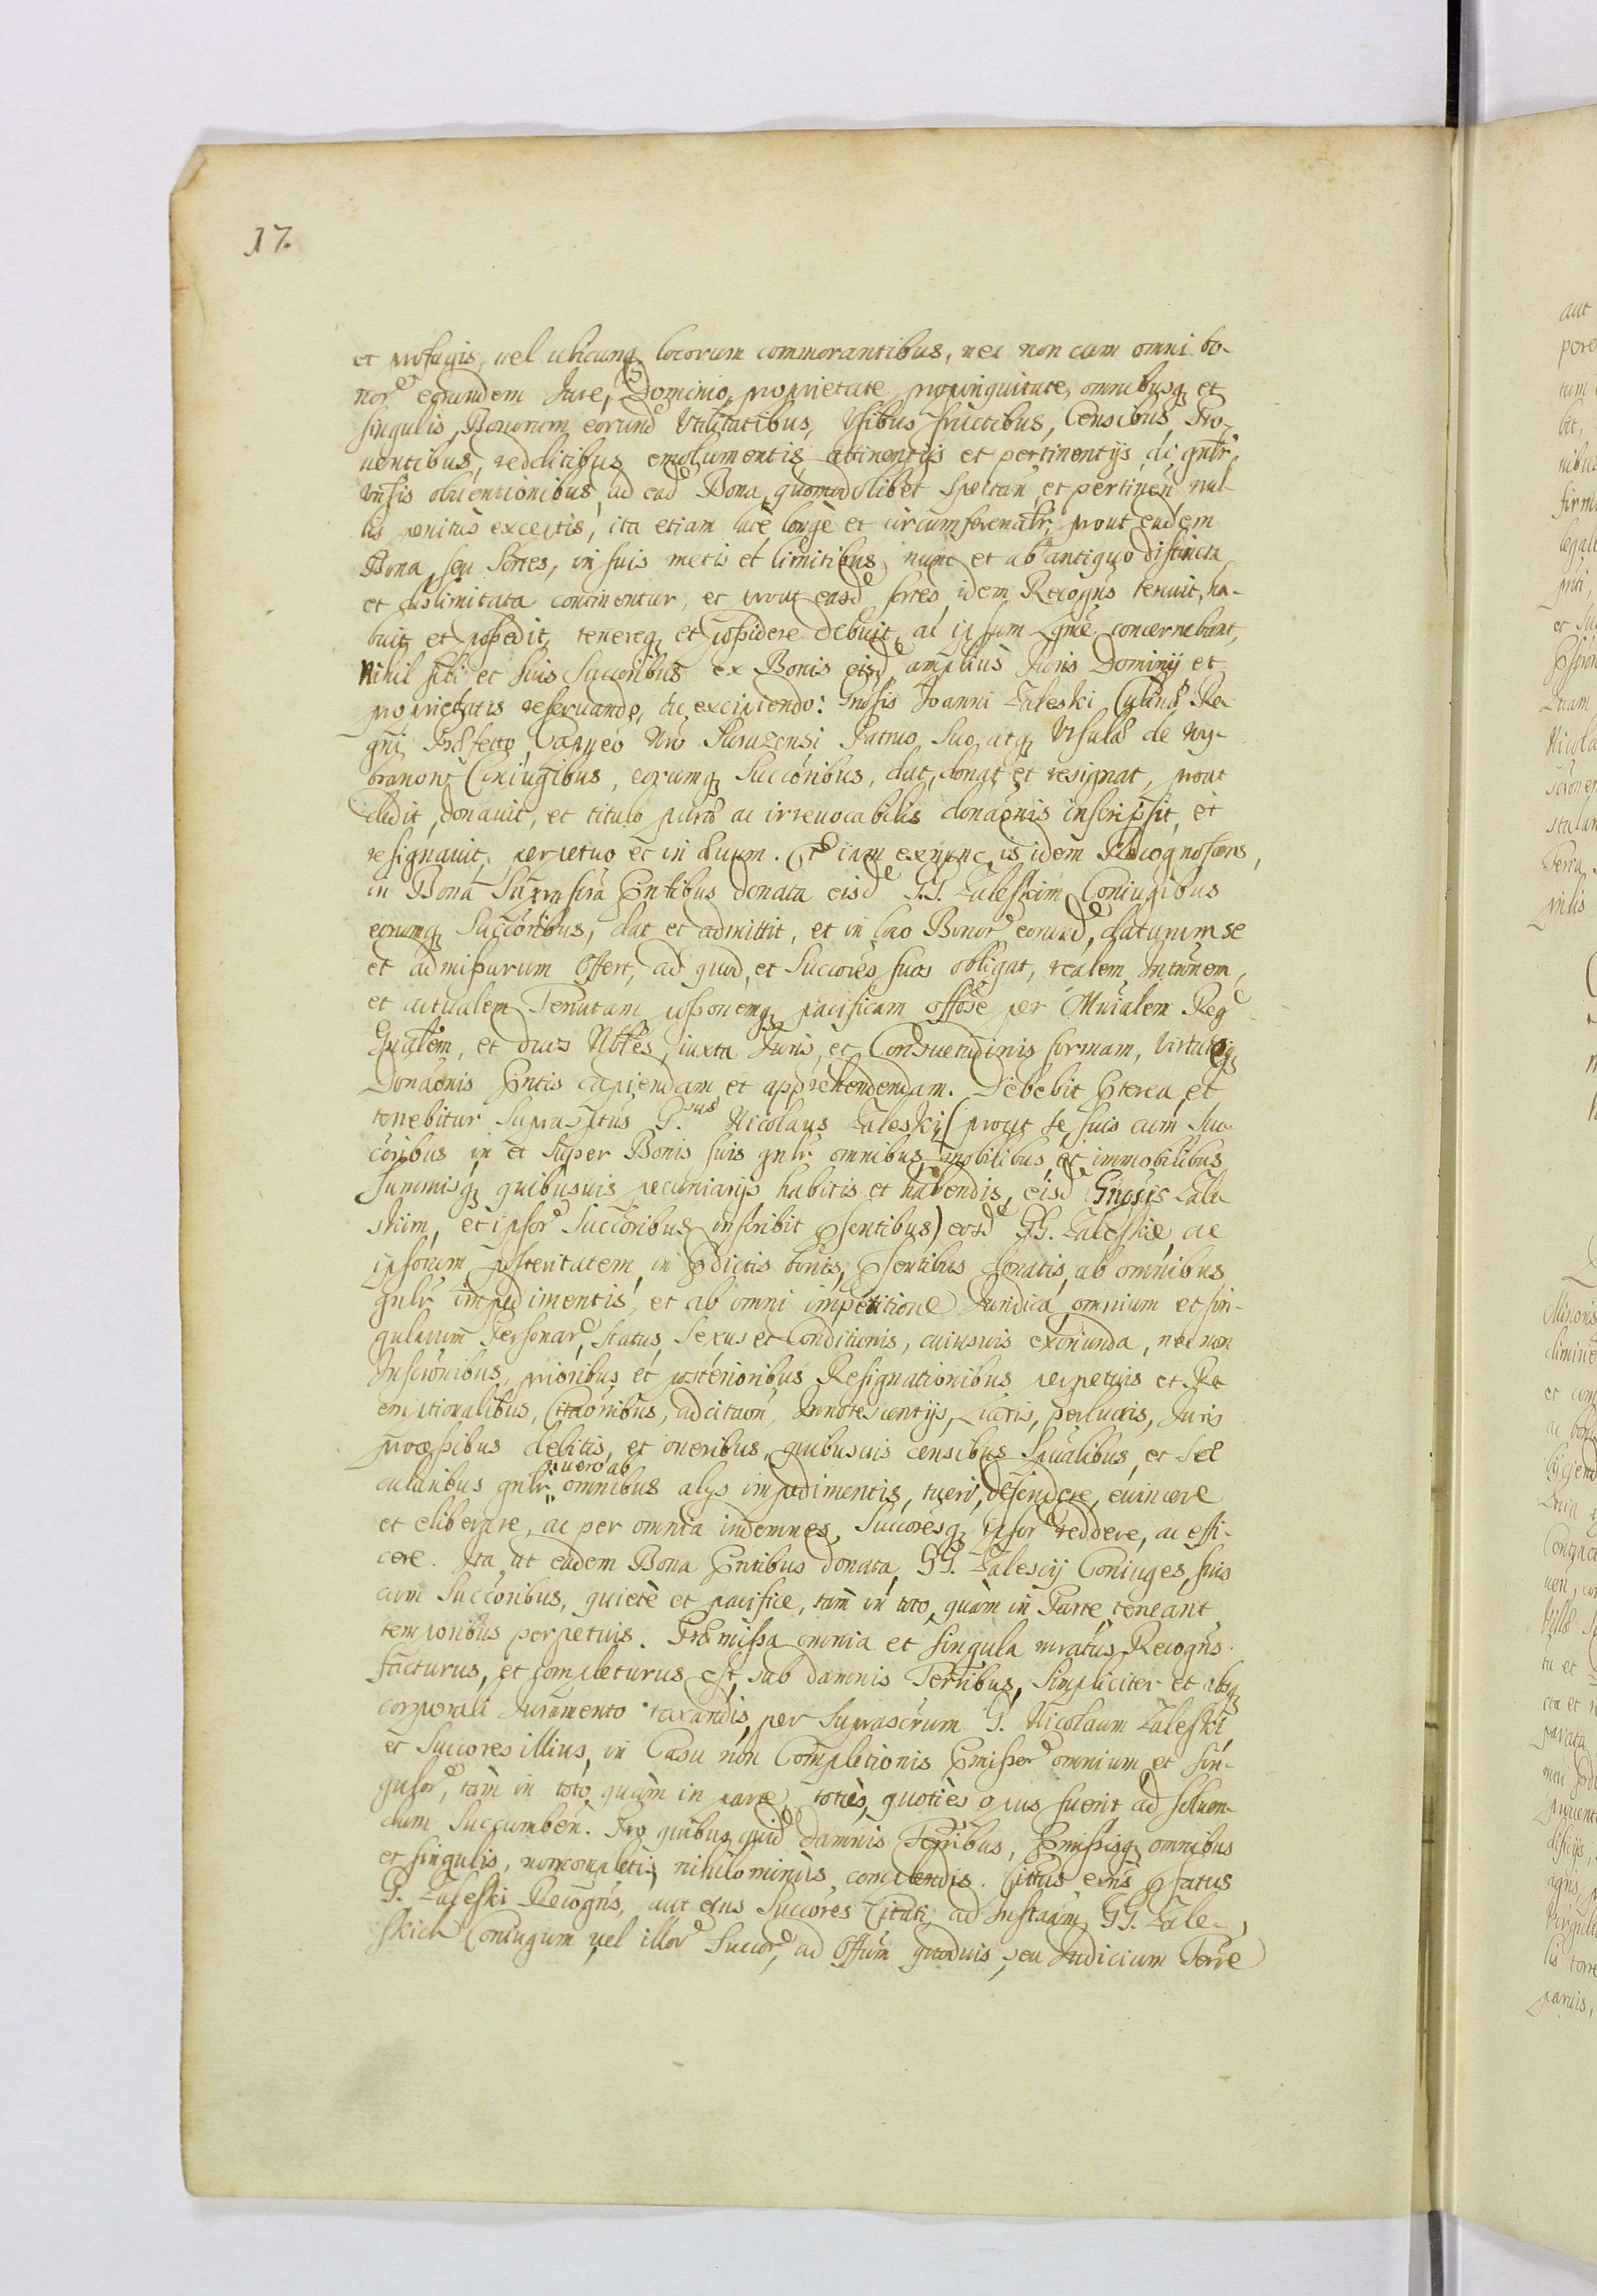 17.
et profugis, vel ubicunq locorum commorantibus, nec non cum omni bo-
nor eorundem Iure, Dominio, proprietate, propinquitate, omnibusq et
singulis, Bonorum eorund Utilitatibus, Usibus fructibus, Censibus, Pro-
uentibus, redditibus emolumentis, attinentijs et pertinentijs, ac gnlr
vnsis obuentionibus, ad ead Bona quomodolibet spectan et pertinen nul-
lis penitus exceptis, ita etiam latè longè et circumferenalr, prout eadem
Bona, seu Sortes, in suis metis et limitibus, nunc et ab antiquo distincta
et dislimitata continentur, et prout easd sortes, idem Recogns tenuit, ha-
buit et possedit, tenereq et possidere debuit, ac ipsum Lgme concernebant,
Nihil sibi et suis Succoribus ex Bonis eisd amplius Iuris Dominij et
proprietatis reseruando, ac excipiendo: Gnosis Joanni Zaleski Re-
gni Præfecto, Nro Patruo Suo, atq Ursulæ de Wy-
branow Coniugibus, eorumq Succoribus, dat, donat et resignat, prout
dedit, donauit, et titulo puræ ac irreuocabilis donaonis inscripsit, et
resignauit, perpetuo et in æuum. Et iam exnunc is idem Recognoscens,
in Bona Suprascra Pntibus donata eisd G.G. Zaleskim Coniugibus
eorumq Succoribus, dat et admittit, et in loco Bonor eorund, daturum se
et admissurum Offert, ad quod, et Succores suos obligat, realem Intrnem,
et actualem Tenutam possonemq pacificam offose per Mnralem Reg
Gnalem, et duos Nobles, iuxta Iuris, et Consuetudinis formam, virtuteq
Donaonis Pntis capiendam et apprehendendam. Debebit Pterea, et
tenebitur Suprasptus G.sus Nicolaus Zaleski (prout se suis cum Suc-
coribus in et super Bonis suis gnlr omnibus, mobilibus, et immobilibus
Summisq quibusuis pecuniarijs habitis et habendis, eisd Gnosis Zale-
skim, et ipsor Succoribus inscribit Psentibus) eosd G.G. Zaleskie, ac
ipsorum posteritatem, in Pdictis bonis, Psentibus donatis, ab omnibus
gnlr impedimentis, et ab omni impetitione Iuridica, omnium et sin-
gularum Personar, status, sexus et Conditionis, cuiusuis exoriunda, nec non
Inscronibus, prioribus et posterioribus Resignationibus perpetuis et Re
emptionalibus, Citaonibus, adcitaon, Innotescentijs, Lucris, perlucris, Iuris
processibus debitis, et oneribus, quibusuis censibus Spualibus, et Sæ
cularibus gnlr uero ab omnibus alijs impedimentis, tueri, defendere, euincere
et eliberare, ac per omnia indemnes, Succoresq ipsor reddere, ac effi-
cere. Ita, ut eadem Bona Pntibus donata, GG. Zalescij Coniuges, suis
cum Succoribus, quietè et pacifice, tàm in toto, quàm in Parte, teneant
temporibus perpetuis. Præmissa omnia et singula mratus Recogns
facturus, et completurus est, sub damnis Terribus, Simpliciter et absq
corporali Iuramento taxandis, per Suprascrum G. Nicolaum Zaleski,
et Succores illius, in Casu non Completionis Pmissor omnium et sin-
gulor, tàm in toto, quàm in parte, toties, quoties opus fuerit ad soluen-
dum Succumben. Pro quibus quid Damnis Terribus, Pmissisq omnibus
et singulis, noncompletis, nihilominus complendis. Cittus exns Pfatus
G. Zaleski Recogns, aut eius Succores Citati, ad Instaam GG. Zale-
skich Coniugum uel illor Succor, ad Offum quoduis, seu Iudicium Terre